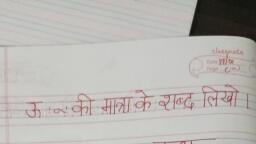 classmate
Date
Page
ऊ ू की मात्रा के शब्द लिखो ।